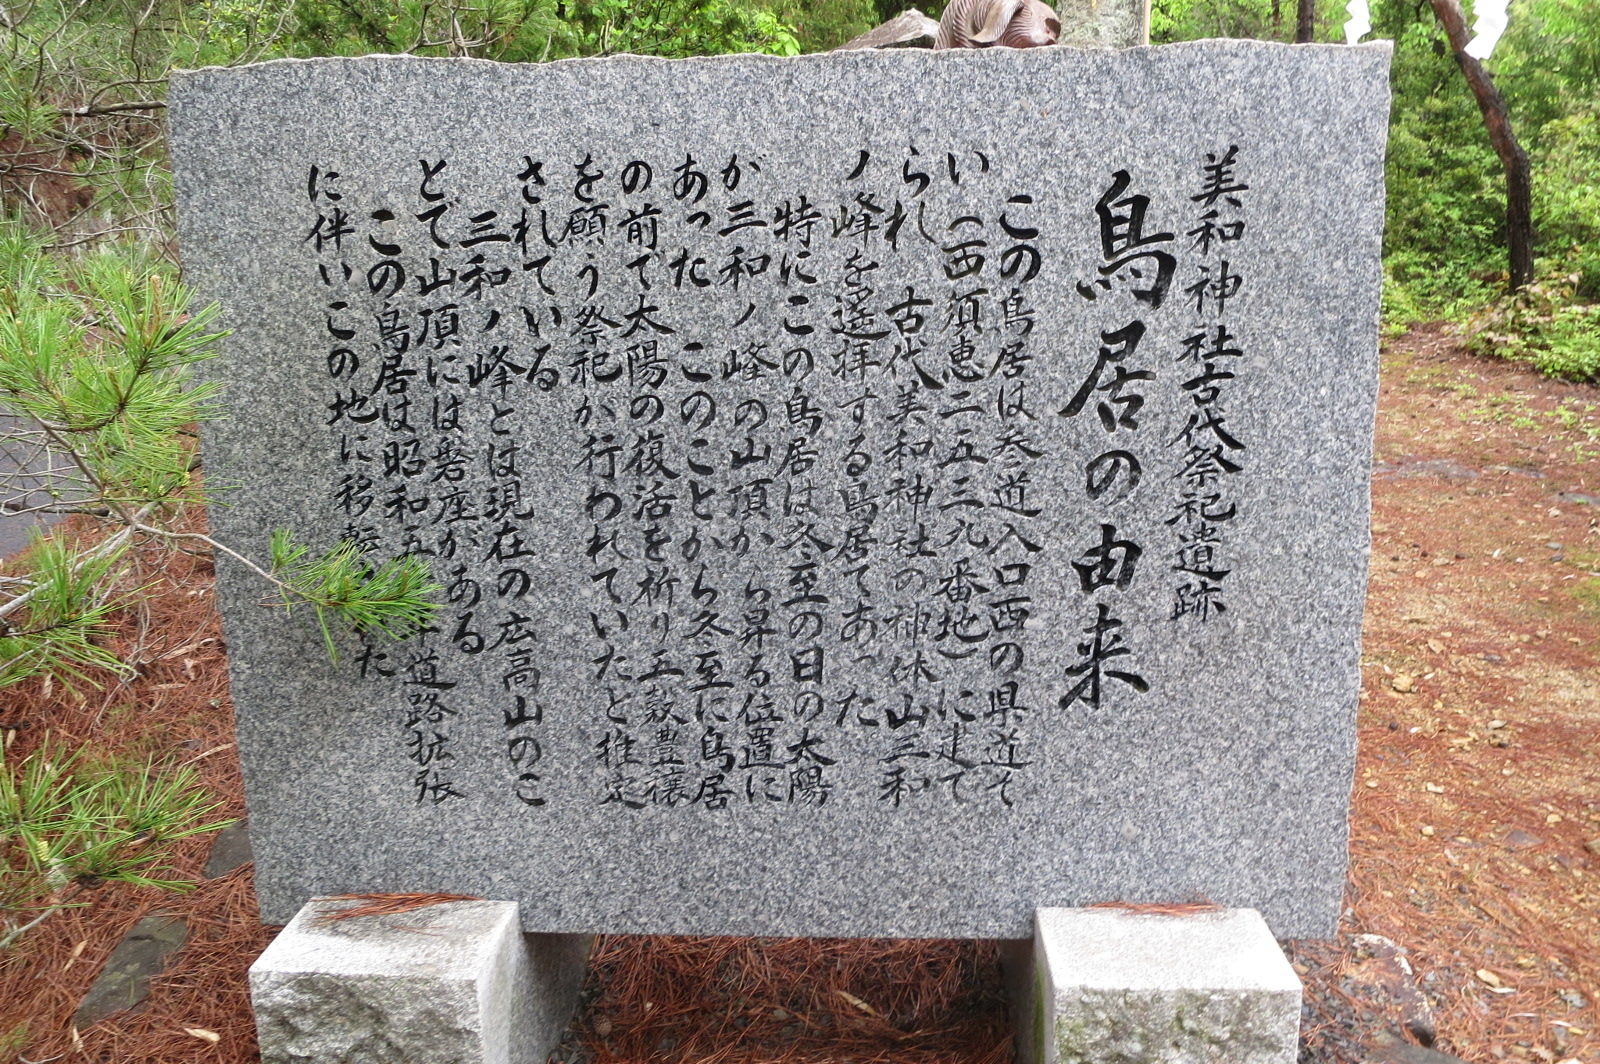 美和神社古代祭祀遺跡
鳥居の由来
この鳥居は参道入口西の県道そ
い(西須恵二五三九番地)に建て
られ 古代美和神社の神体山三和
ノ峰を遥拝する鳥居であった
特にこの鳥居は冬至の日の太陽
が三和ノ峰の山頂から昇る位置に
あった このことから冬至に鳥居
の前で太陽の復活を祈り五穀豊穣
を願う祭祀が行われていたと推定
されている
三和ノ峰とは現在の広高山のこ
とで山頂には磐座がある
この鳥居は昭和五 道路拡張
に伴いこの地に移転 た